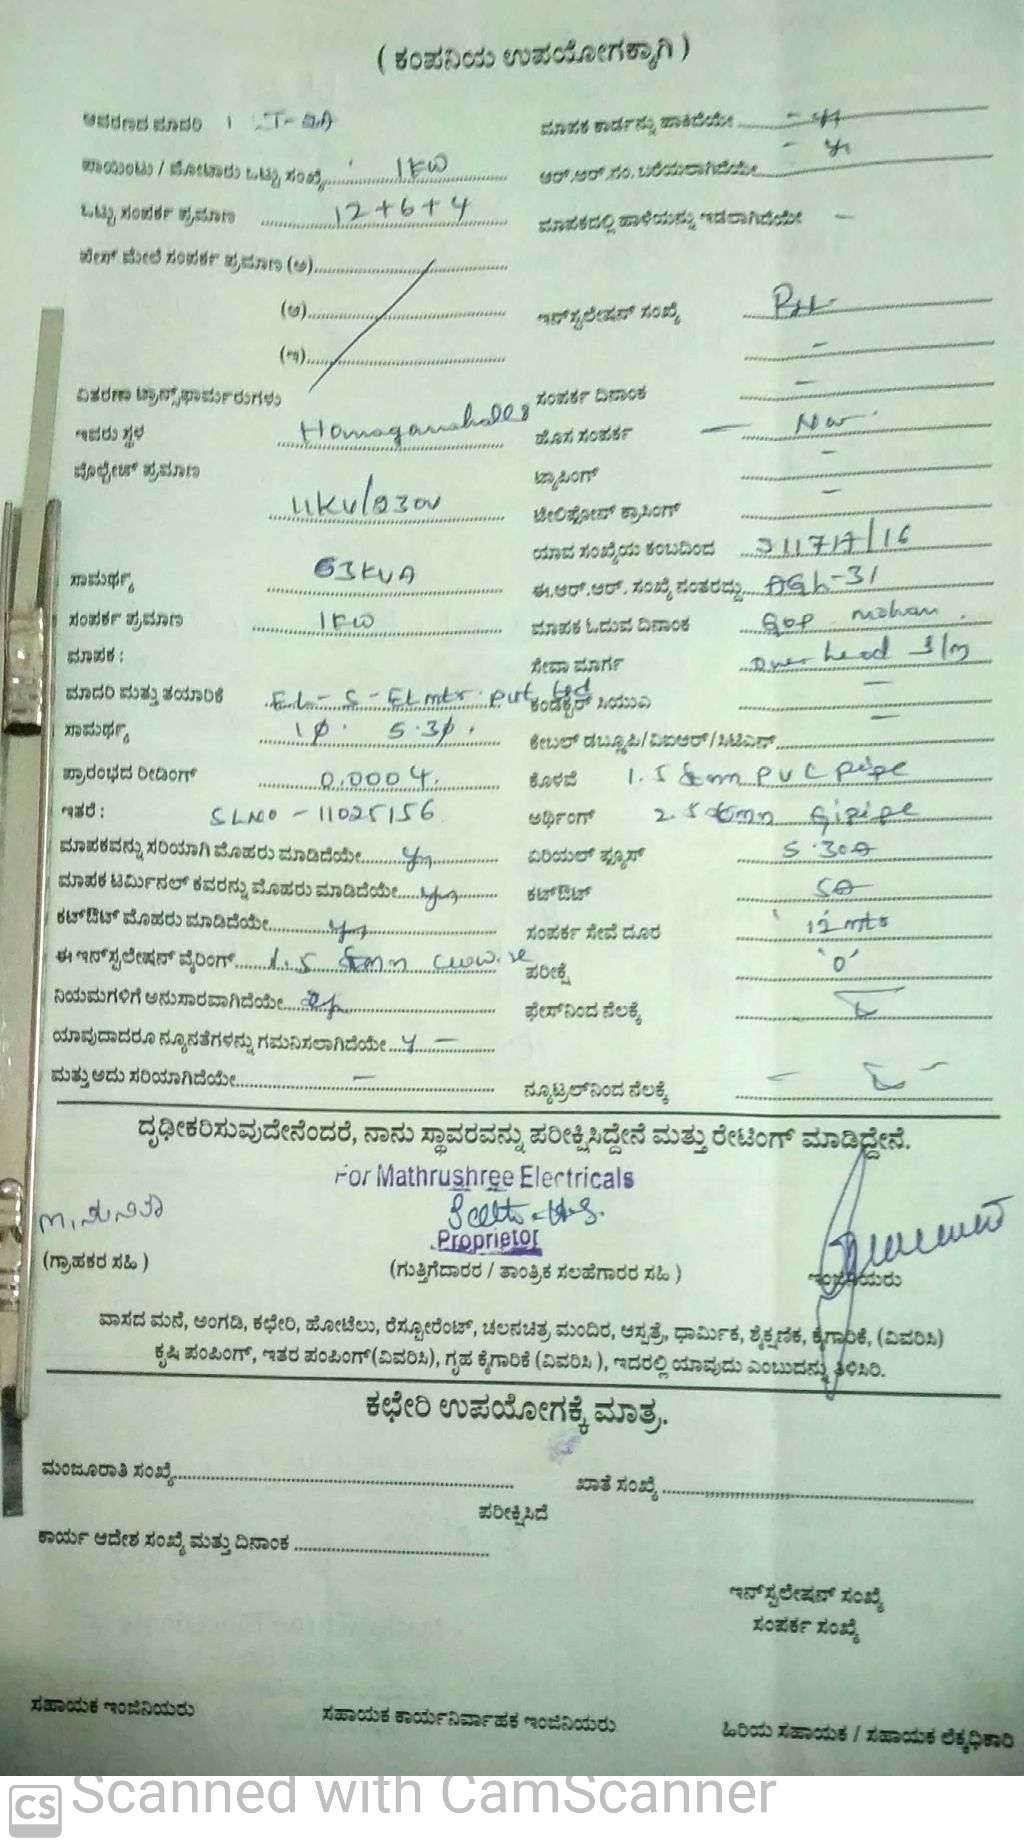 ( ಕಂಪನಿಯ ಉಪಯೋಗಕ್ಕಾಗಿ )
ಆವರಣದ ಮಾದರಿ
ಮಾಪಕ ಕಾರ್ಡನ್ನು ಹಾಕಿದೆಯೇ
ಪಾಯಿಂಟು / ಮೋಟಾರು ಒಟ್ಟು ಸಂಖ್ಯೆ 1KW
ಆರ್.ಆರ್.ನಂ. ಬರೆಯಲಾಗಿದೆಯೇ
ಒಟ್ಟು ಸಂಪರ್ಕ ಪ್ರಮಾಣ 12+6+4
ಮಾಪಕದಲ್ಲಿ ಹಾಳೆಯನ್ನು ಇಡಲಾಗಿದೆಯೇ -
ಫೇಸ್ ಮೇಲೆ ಸಂಪರ್ಕ ಪ್ರಮಾಣ (ಅ)
(ಆ)
ಇನ್‌ಸ್ಟಲೇಷನ್ ಸಂಖ್ಯೆ
(ಇ)
ವಿತರಣಾ ಟ್ರಾನ್ಸ್‌ಫಾರ್ಮರುಗಳು
ಸಂಪರ್ಕ ದಿನಾಂಕ -
ಇವರು ಸ್ಥಳ
ಹೊಸ ಸಂಪರ್ಕ - New
ವೊಲ್ಟೇಜ್ ಪ್ರಮಾಣ 11KV/230V
ಟ್ಯಾಪಿಂಗ್ -
ಟೆಲಿಫೋನ್ ಕ್ರಾಸಿಂಗ್ -
ಯಾವ ಸಂಖ್ಯೆಯ ಕಂಬದಿಂದ
ಸಾಮರ್ಥ್ಯ 63KVA
ಈ.ಆರ್.ಆರ್. ಸಂಖ್ಯೆ ನಂತರದ್ದು
ಸಂಪರ್ಕ ಪ್ರಮಾಣ 1KW
ಮಾಪಕ ಓದುವ ದಿನಾಂಕ mohan
ಮಾಪಕ :
ಸೇವಾ ಮಾರ್ಗ over head
ಮಾದರಿ ಮತ್ತು ತಯಾರಿಕೆ
ಕಂಡಕ್ಟರ್ ಸಿಯುಎ -
ಸಾಮರ್ಥ್ಯ 1ø
ಕೇಬಲ್ ಡಬ್ಲೂಪಿ/ವಿಐಆರ್/ಸಿಟಿಎಸ್
ಪ್ರಾರಂಭದ ರೀಡಿಂಗ್ 0.0004.
ಕೊಳವೆ 1.5 PVC pipe
ಇತರೆ : SLNO - 11025156
ಅರ್ಥಿಂಗ್ 2.5
ಮಾಪಕವನ್ನು ಸರಿಯಾಗಿ ಮೊಹರು ಮಾಡಿದೆಯೇ
ಏರಿಯಲ್ ಫ್ಯೂಸ್
ಮಾಪಕ ಟರ್ಮಿನಲ್ ಕವರನ್ನು ಮೊಹರು ಮಾಡಿದೆಯೇ
ಕಟ್‌ಔಟ್ 5A
ಕಟ್‌ಔಟ್ ಮೊಹರು ಮಾಡಿದೆಯೇ
ಸಂಪರ್ಕ ಸೇವೆ ದೂರ 12 mts
ಈ ಇನ್‌ಸ್ಟಲೇಷನ್ ವೈರಿಂಗ್ 1.5
ಪರೀಕ್ಷೆ '0'
ನಿಯಮಗಳಿಗೆ ಅನುಸಾರವಾಗಿದೆಯೇ
ಫೇಸ್‌ನಿಂದ ನೆಲಕ್ಕೆ
ಯಾವುದಾದರೂ ನ್ಯೂನತೆಗಳನ್ನು ಗಮನಿಸಲಾಗಿದೆಯೇ
ಮತ್ತು ಅದು ಸರಿಯಾಗಿದೆಯೇ -
ನ್ಯೂಟ್ರಲ್‌ನಿಂದ ನೆಲಕ್ಕೆ
ದೃಢೀಕರಿಸುವುದೇನೆಂದರೆ, ನಾನು ಸ್ಥಾವರವನ್ನು ಪರೀಕ್ಷಿಸಿದ್ದೇನೆ ಮತ್ತು ರೇಟಿಂಗ್ ಮಾಡಿದ್ದೇನೆ.
For Mathrushree Electricals
Proprietor
(ಗ್ರಾಹಕರ ಸಹಿ )
(ಗುತ್ತಿಗೆದಾರರ / ತಾಂತ್ರಿಕ ಸಲಹೆಗಾರರ ಸಹಿ )
ವಾಸದ ಮನೆ, ಅಂಗಡಿ, ಕಛೇರಿ, ಹೋಟೆಲು, ರೆಸ್ಟೋರೆಂಟ್, ಚಲನಚಿತ್ರ ಮಂದಿರ, ಆಸ್ಪತ್ರೆ, ಧಾರ್ಮಿಕ, ಶೈಕ್ಷಣಿಕ, ಕೈಗಾರಿಕೆ, (ವಿವರಿಸಿ)
ಕೃಷಿ ಪಂಪಿಂಗ್, ಇತರ ಪಂಪಿಂಗ್(ವಿವರಿಸಿ), ಗೃಹ ಕೈಗಾರಿಕೆ (ವಿವರಿಸಿ ), ಇದರಲ್ಲಿ ಯಾವುದು ಎಂಬುದನ್ನು ತಿಳಿಸಿರಿ.
ಕಛೇರಿ ಉಪಯೋಗಕ್ಕೆ ಮಾತ್ರ.
ಮಂಜೂರಾತಿ ಸಂಖ್ಯೆ
ಖಾತೆ ಸಂಖ್ಯೆ
ಪರೀಕ್ಷಿಸಿದೆ
ಕಾರ್ಯ ಆದೇಶ ಸಂಖ್ಯೆ ಮತ್ತು ದಿನಾಂಕ
ಇನ್‌ಸ್ಟಲೇಷನ್ ಸಂಖ್ಯೆ
ಸಂಪರ್ಕ ಸಂಖ್ಯೆ
ಸಹಾಯಕ ಇಂಜಿನಿಯರು
ಸಹಾಯಕ ಕಾರ್ಯನಿರ್ವಾಹಕ ಇಂಜಿನಿಯರು
ಹಿರಿಯ ಸಹಾಯಕ / ಸಹಾಯಕ ಲೆಕ್ಕಧಿಕಾರಿ
CS Scanned with CamScanner